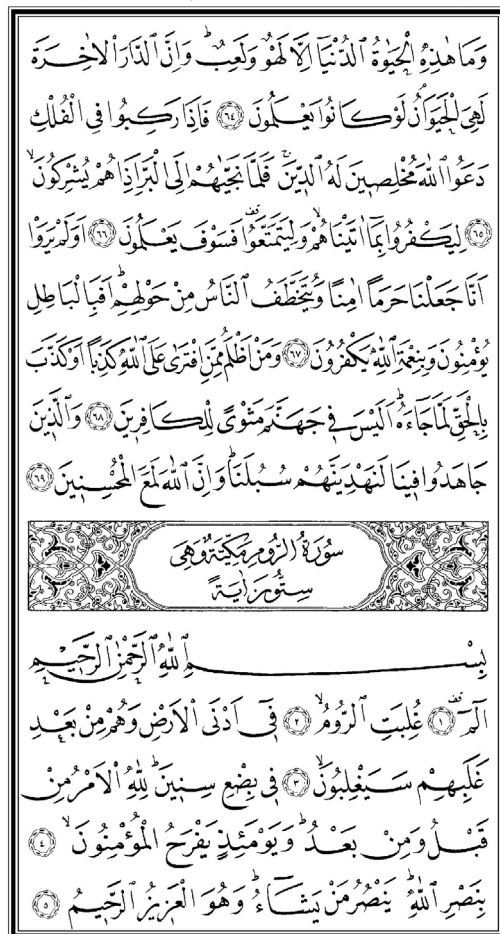 وَمَا هٰذِهِ الْحَيٰوةُ الدُّنْيَٓا اِلَّا لَهْوٌ وَلَعِبٌۜ وَاِنَّ الدَّارَ الْاٰخِرَةَ
لَهِيَ الْحَيَوَانُۢ لَوْ كَانُوا يَعْلَمُونَ ﴿٦٤﴾ فَاِذَا رَكِبُوا فِي الْفُلْكِ
دَعَوُا اللّٰهَ مُخْلِصٖينَ لَهُ الدّٖينَۚ فَلَمَّا نَجّٰيهُمْ اِلَى الْبَرِّ اِذَا هُمْ يُشْرِكُونَۙ
﴿٦٥﴾ لِيَكْفُرُوا بِمَٓا اٰتَيْنَاهُمْۙ وَلِيَتَمَتَّعُوا۠ فَسَوْفَ يَعْلَمُونَ ﴿٦٦﴾ اَوَلَمْ يَرَوْا
اَنَّا جَعَلْنَا حَرَماً اٰمِناً وَيُتَخَطَّفُ النَّاسُ مِنْ حَوْلِهِمْۜ اَفَبِالْبَاطِلِ
يُؤْمِنُونَ وَبِنِعْمَةِ اللّٰهِ يَكْفُرُونَ ﴿٦٧﴾ وَمَنْ اَظْلَمُ مِمَّنِ افْتَرٰى عَلَى اللّٰهِ كَذِباً اَوْ كَذَّبَ
بِالْحَقِّ لَمَّا جَٓاءَهُۜ اَلَيْسَ فٖي جَهَنَّمَ مَثْوًى لِلْكَافِرٖينَ ﴿٦٨﴾ وَالَّذٖينَ
جَاهَدُوا فٖينَا لَنَهْدِيَنَّهُمْ سُبُلَنَاۜ وَاِنَّ اللّٰهَ لَمَعَ الْمُحْسِنٖينَ ﴿٦٩﴾
سُورَةُ الرُّومِ مَكِّيَّةٌ وَهِيَ
سِتُّونَ اٰيَةً
بِسْمِ اللّٰهِ الرَّحْمٰنِ الرَّحٖيمِ
الٓمٓ ﴿١﴾ غُلِبَتِ الرُّومُۙ ﴿٢﴾ فٖٓي اَدْنَى الْاَرْضِ وَهُمْ مِنْ بَعْدِ
غَلَبِهِمْ سَيَغْلِبُونَۙ ﴿٣﴾ فٖي بِضْعِ سِنٖينَۜ لِلّٰهِ الْاَمْرُ مِنْ
قَبْلُ وَمِنْ بَعْدُۜ وَيَوْمَئِذٍ يَفْرَحُ الْمُؤْمِنُونَۙ ﴿٤﴾
بِنَصْرِ اللّٰهِۜ يَنْصُرُ مَنْ يَشَٓاءُۜ وَهُوَ الْعَزٖيزُ الرَّحٖيمُ ﴿٥﴾